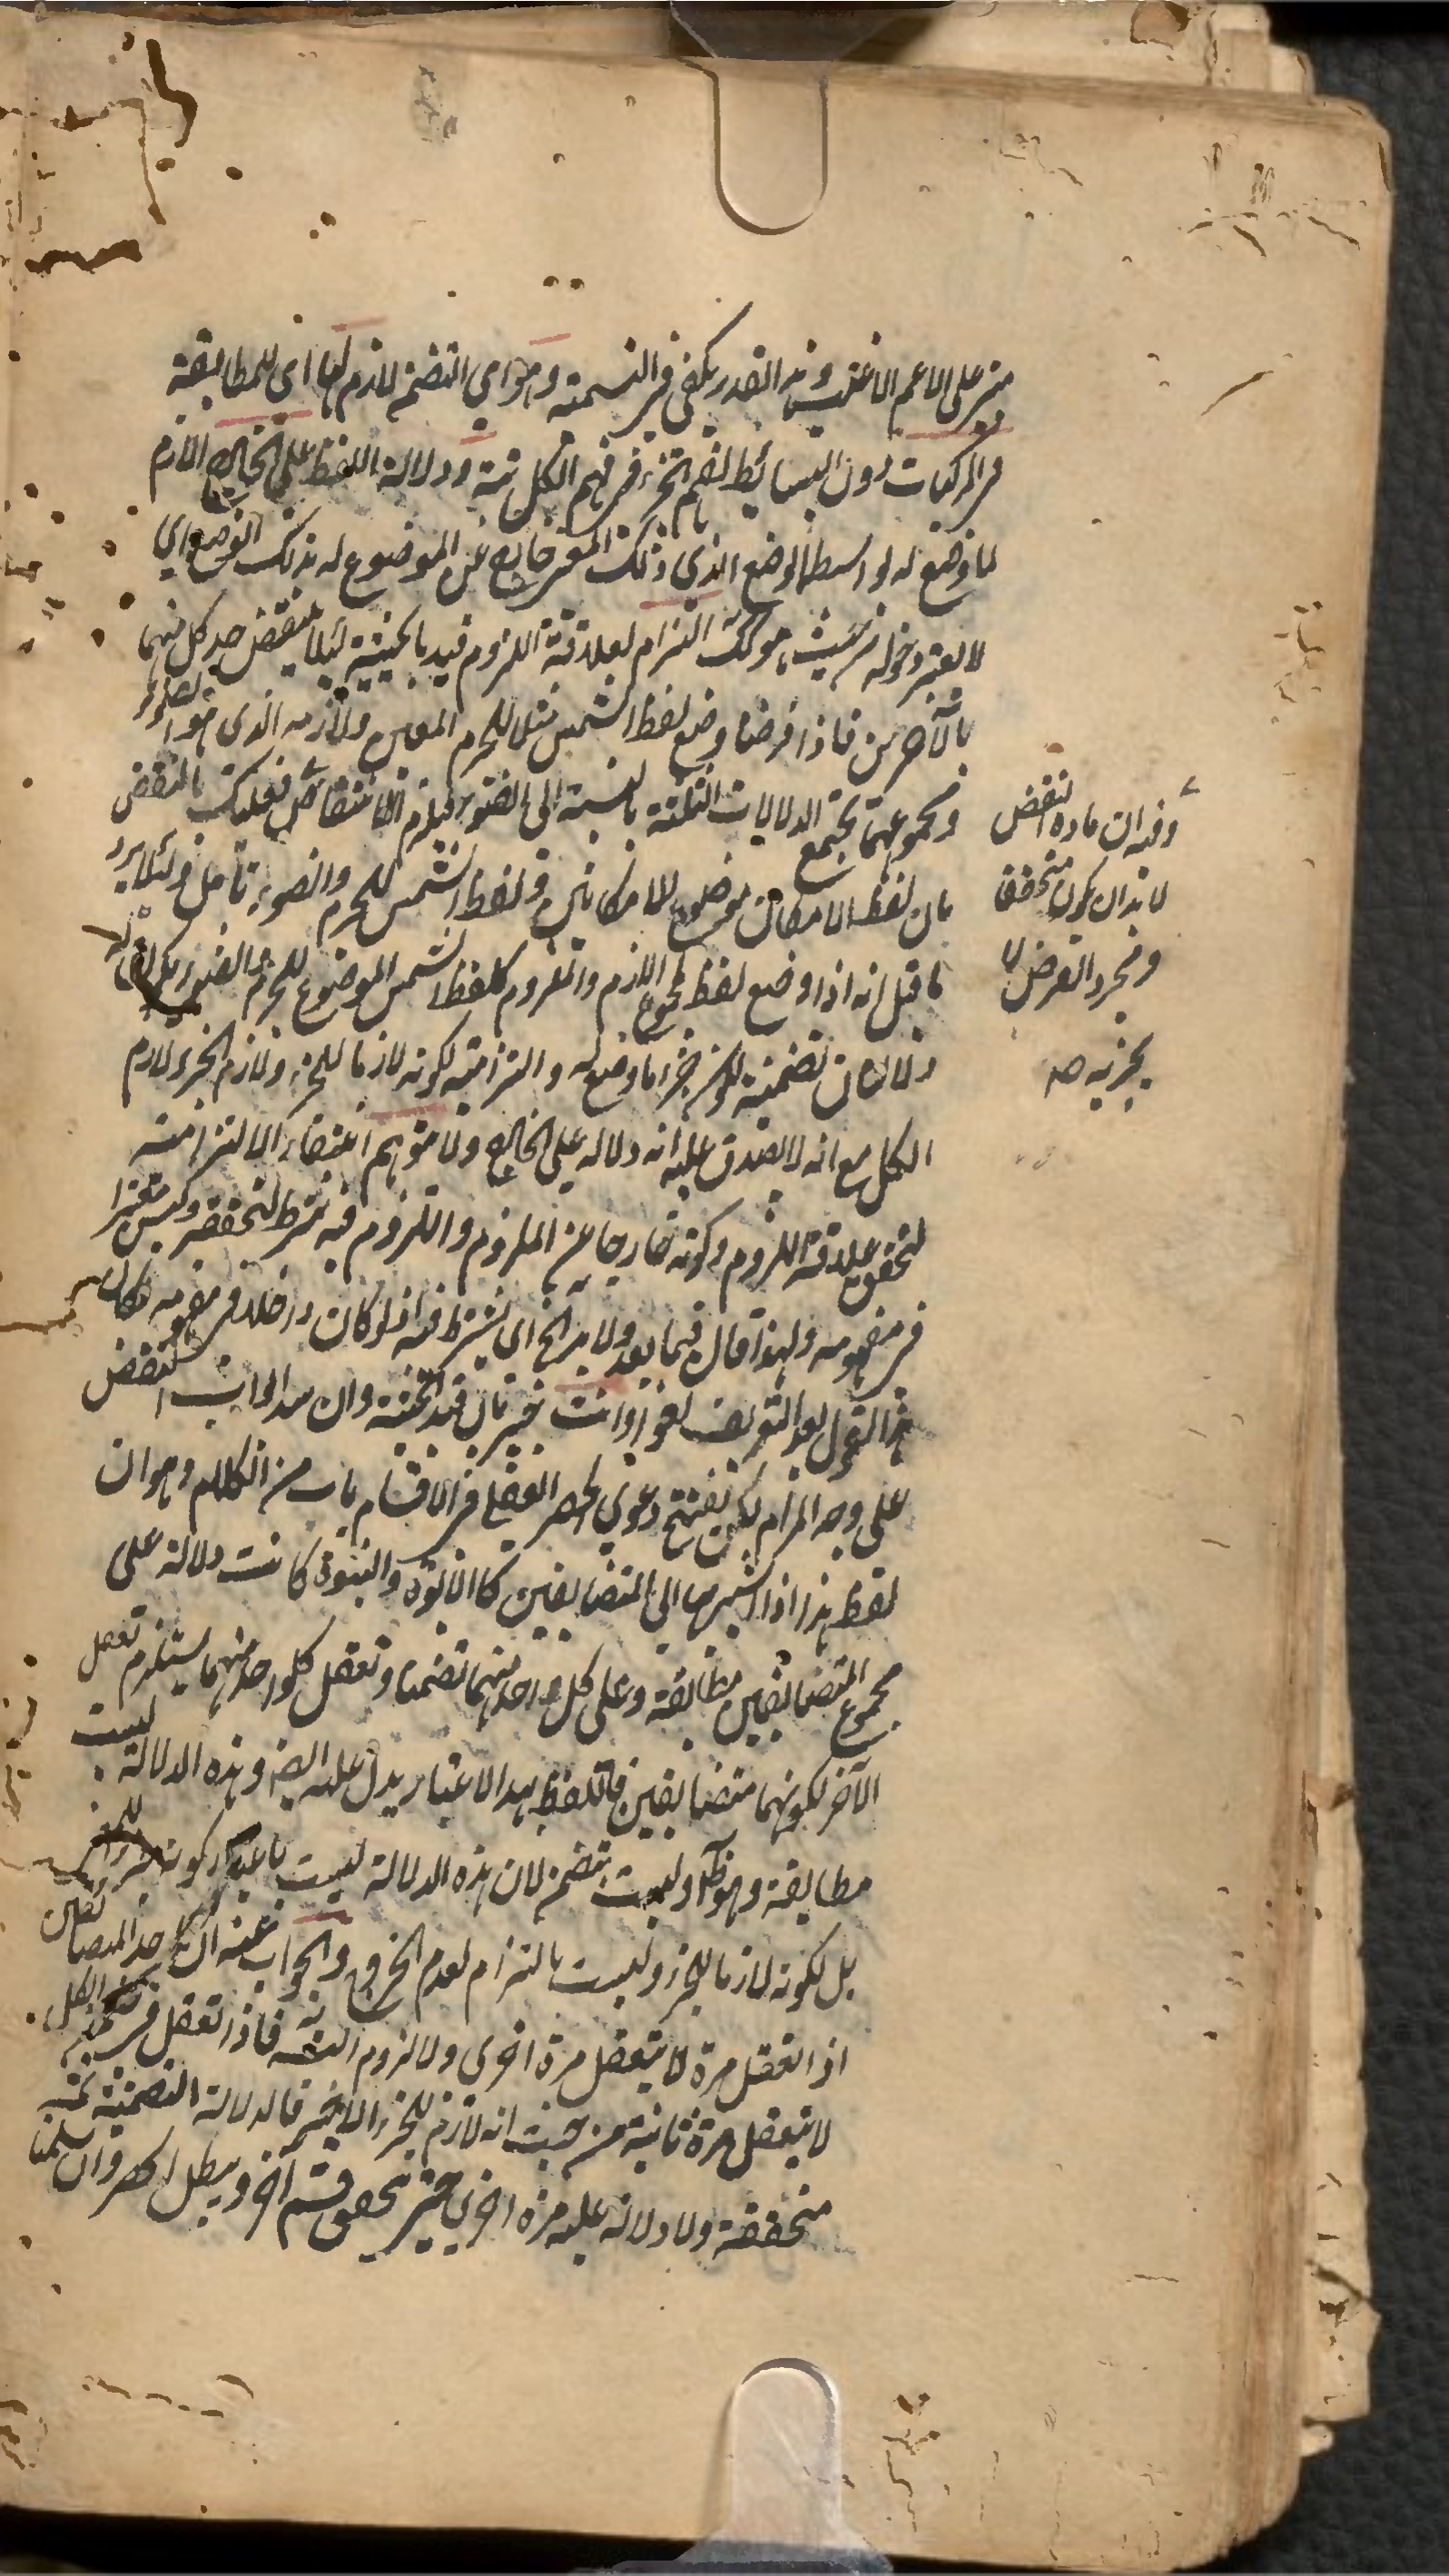 على الاعم الاغلب وهذا القدر يكفى فى التسمية وهو اى التضمن لازم لها اى للمطابقة
فى المركبات دون البسائط لفهم الجزء فى فهم الكل ثمة ودلالة اللفظ على الخارج اللازم
لما وضع له بواسطة الوضع الذى ذلك المعنى خارج عن الموضوع له بذلك الوضع اى
لا يعتبر دخوله من حيث هو كك التزام لعلاقة اللزوم قيد بالحيثية لئلا ينتقض حد كل منها
بالآخرين فاذا فرضنا وضع لفظ الشمس مثلا للجرم المعين ولازمه الذى هو الضوء
ومجموعهما تجتمع الدلالات الثلثة بالنسبة الى الضوء فيلزم الانتقاض فعليك بالنقض
بان لفظ الامكان موضوع للامكانين ولفظ الشمس للجرم والضوء تأمل ولئلا يرد
ما قيل انه اذا وضع لفظ لمجموع اللازم والملزوم كلفظ الشمس الموضوع للجرم والضوء يكون له
دلالتان تضمنية لكونه جزء ما وضع له والتزامية لكونه لازما للجزء ولازم الجزء لازم
الكل مع انه لا يصدق عليه انه دلالة على الخارج ولا متوهم انتفاء الالتزامية
لتحقق علاقة اللزوم وكونه خارجا عن الملزوم واللزوم فيه شرط لتحققه وليس معتبرا
فى مفهومه ولهذا قال فيما بعد ولا بد الخ اى يشترط فيه اذ لو كان داخلا فى مفهومه لكان
هذا القول بعد التعريف لغوا وانت خبير بان قيد الحيثية وان سد ابواب النقض
على وجه المرام لكن تفتتح دعوى الحصر العقلى فى الاقسام باب من الكلام وهو ان
لفظ هذا اذا اشير بها الى المتضايفين كالابوة والبنوة كانت دلالة على
مجموع المتضايفين مطابقة وعلى كل واحد منهما تضمنا وتعقل كل واحد منهما يستلزم تعقل
الآخر لكونهما متضايفين فاللفظ بهذا الاعتبار يدل عليه ايضا وهذه الدلالة ليست
مطابقة وهو ظ وليست تضمن لان هذه الدلالة ليست باعتبار كونه
بل لكونه لازما للجزء وليست بالتزام لعدم الخروج والجواب عنه ان احد المتضايفين
اذا تعقل مرة لا يتعقل مرة اخرى ولا لزوم فاذا تعقل فى ضمن الكل
لا يتعقل مرة ثانية من حيث انه لازم للجزء الاخير فالدلالة التضمنية ثمة
متحققة ولا دلالة عليه مرة اخرى حتى تحقق قسم آخر ويبطل الحصر وان سلمنا
وفيه ان مادة النقض
لا بد ان يكون متحققة
ومجرد الفرض لا
يجزيه